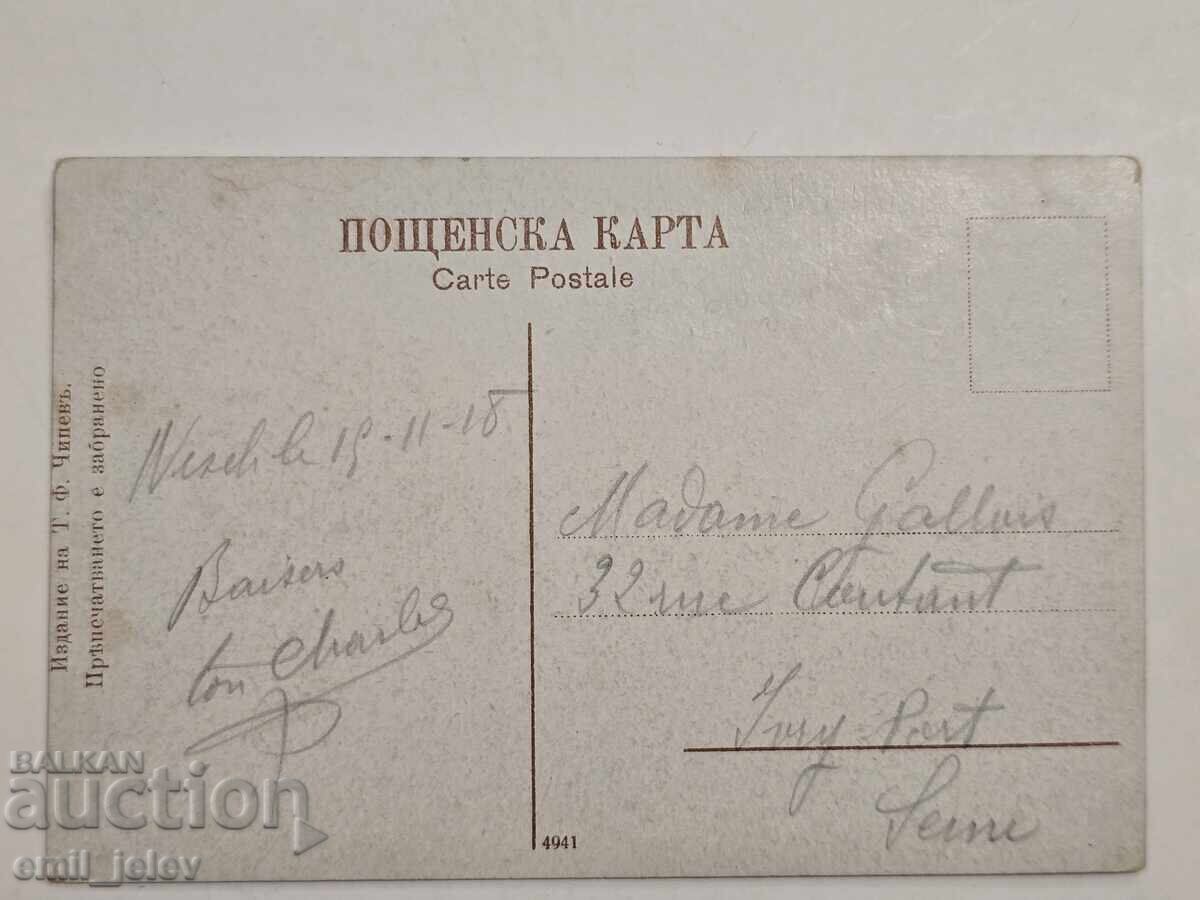 ПОЩЕНСКА КАРТА
Carte Postale
Издание на Т. Ф. Чипевъ.
Прѣпечатването е забранено
19-11-18
Baisers
ton Charles
Madame Gallois
32 rue Coutant
Ivry Port
Seine
4941
BALKAN
auction
emil_jelev